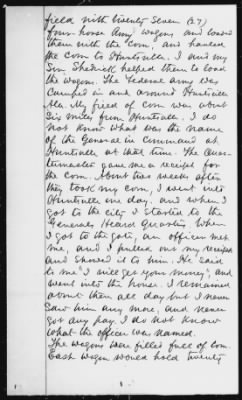 field with twenty seven (27)
four horse Army wagons and loaded
them with the corn, and hauled
the corn to Huntsville. I and my
Son Shedrick helped them to load
the wagons. The Federal army was
Camped in and around Huntsville
Ala. My field of corn was about
Six miles from Huntsville. I do
not know what was the name
of the General in Command at
Huntsville at that time. The Quar-
termaster gave me a receipt for
the corn. About two weeks after
they took my corn, I went into
Huntsville one day, and when I
got to the city I started to the
Generals Head Quarters. When
I got to the gate, an officer met
me, and I pulled out my receipt
and showed it to him. He said
to me "I will get your money", and
went into the house. I remained
about there all day but I never
saw him any more, and never
got any pay. I do not know
what the officer was named.
The wagons were filled full of corn.
Each wagon would hold twenty